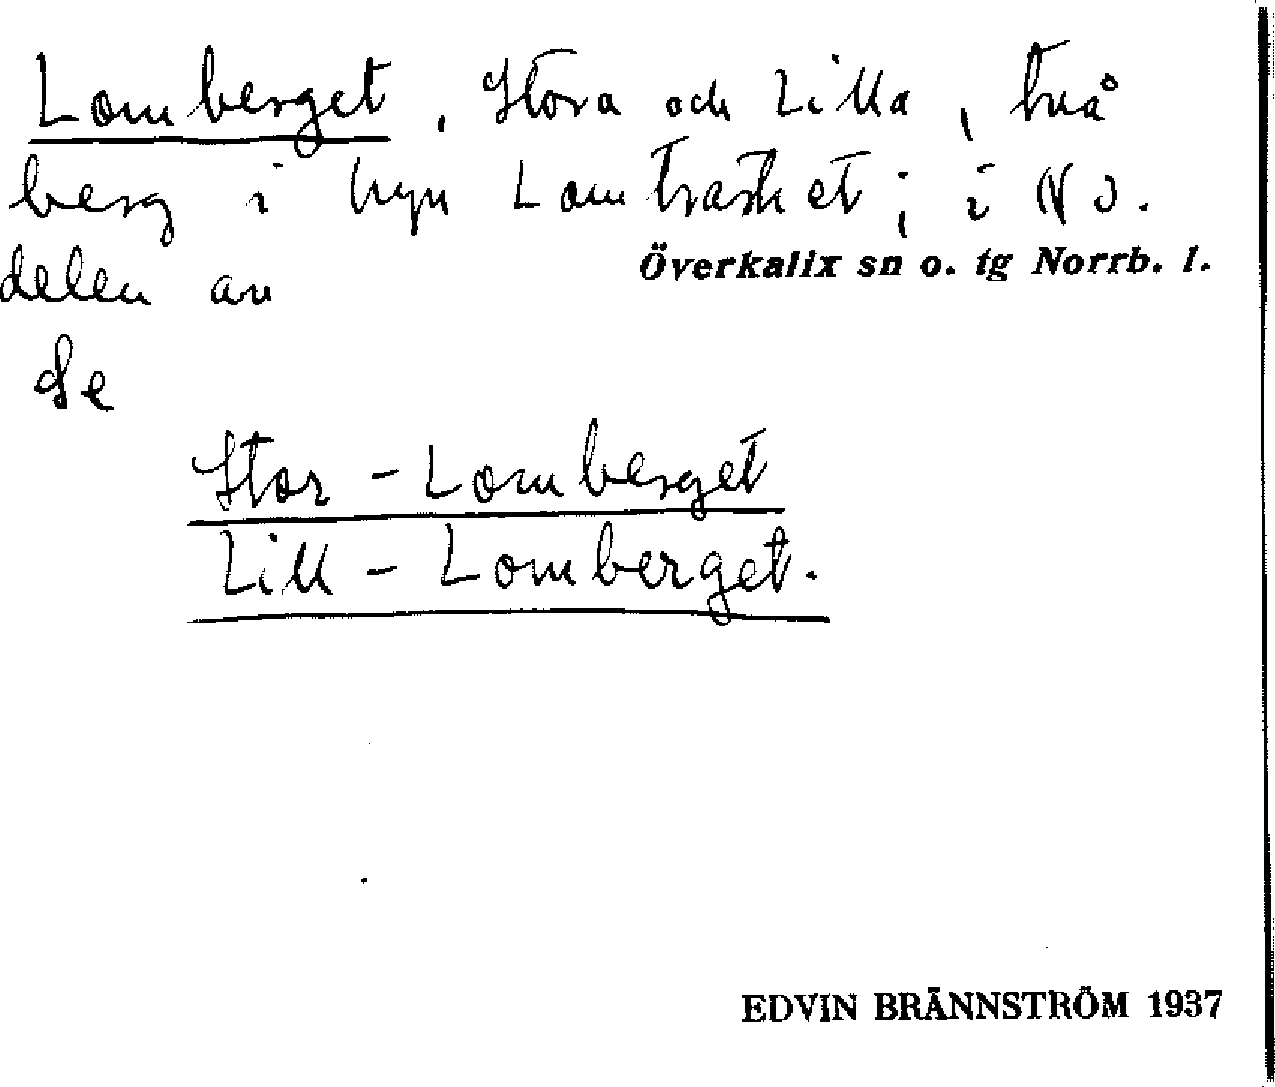 Lomberget, Stora och Lilla, två
berg i byn Lomträsket; i NO.
delen av Överkalix sn o. tg Norrb. l.
Se
Stor-Lomberget
Lill-Lomberget.
EDVIN BRÄNNSTRÖM 1937